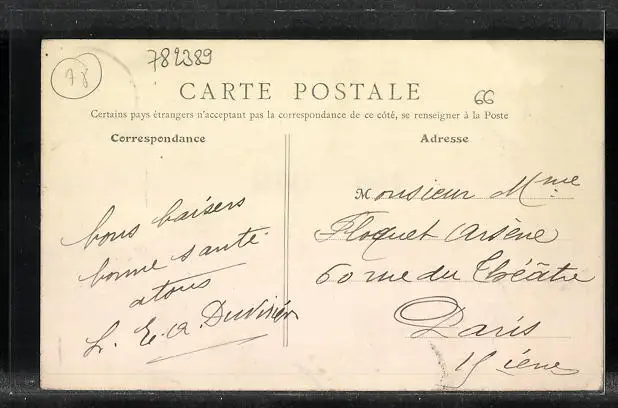 782389
78
CARTE POSTALE
66
Certains pays étrangers n'acceptant pas la correspondance de ce côté, se renseigner à la Poste
Correspondance
bons baisers
bonne santé
atous
L. E. A. Duvivier
Adresse
Monsieur Mme
Floquet Arsène
60 rue du Théâtre
Paris
15 ième